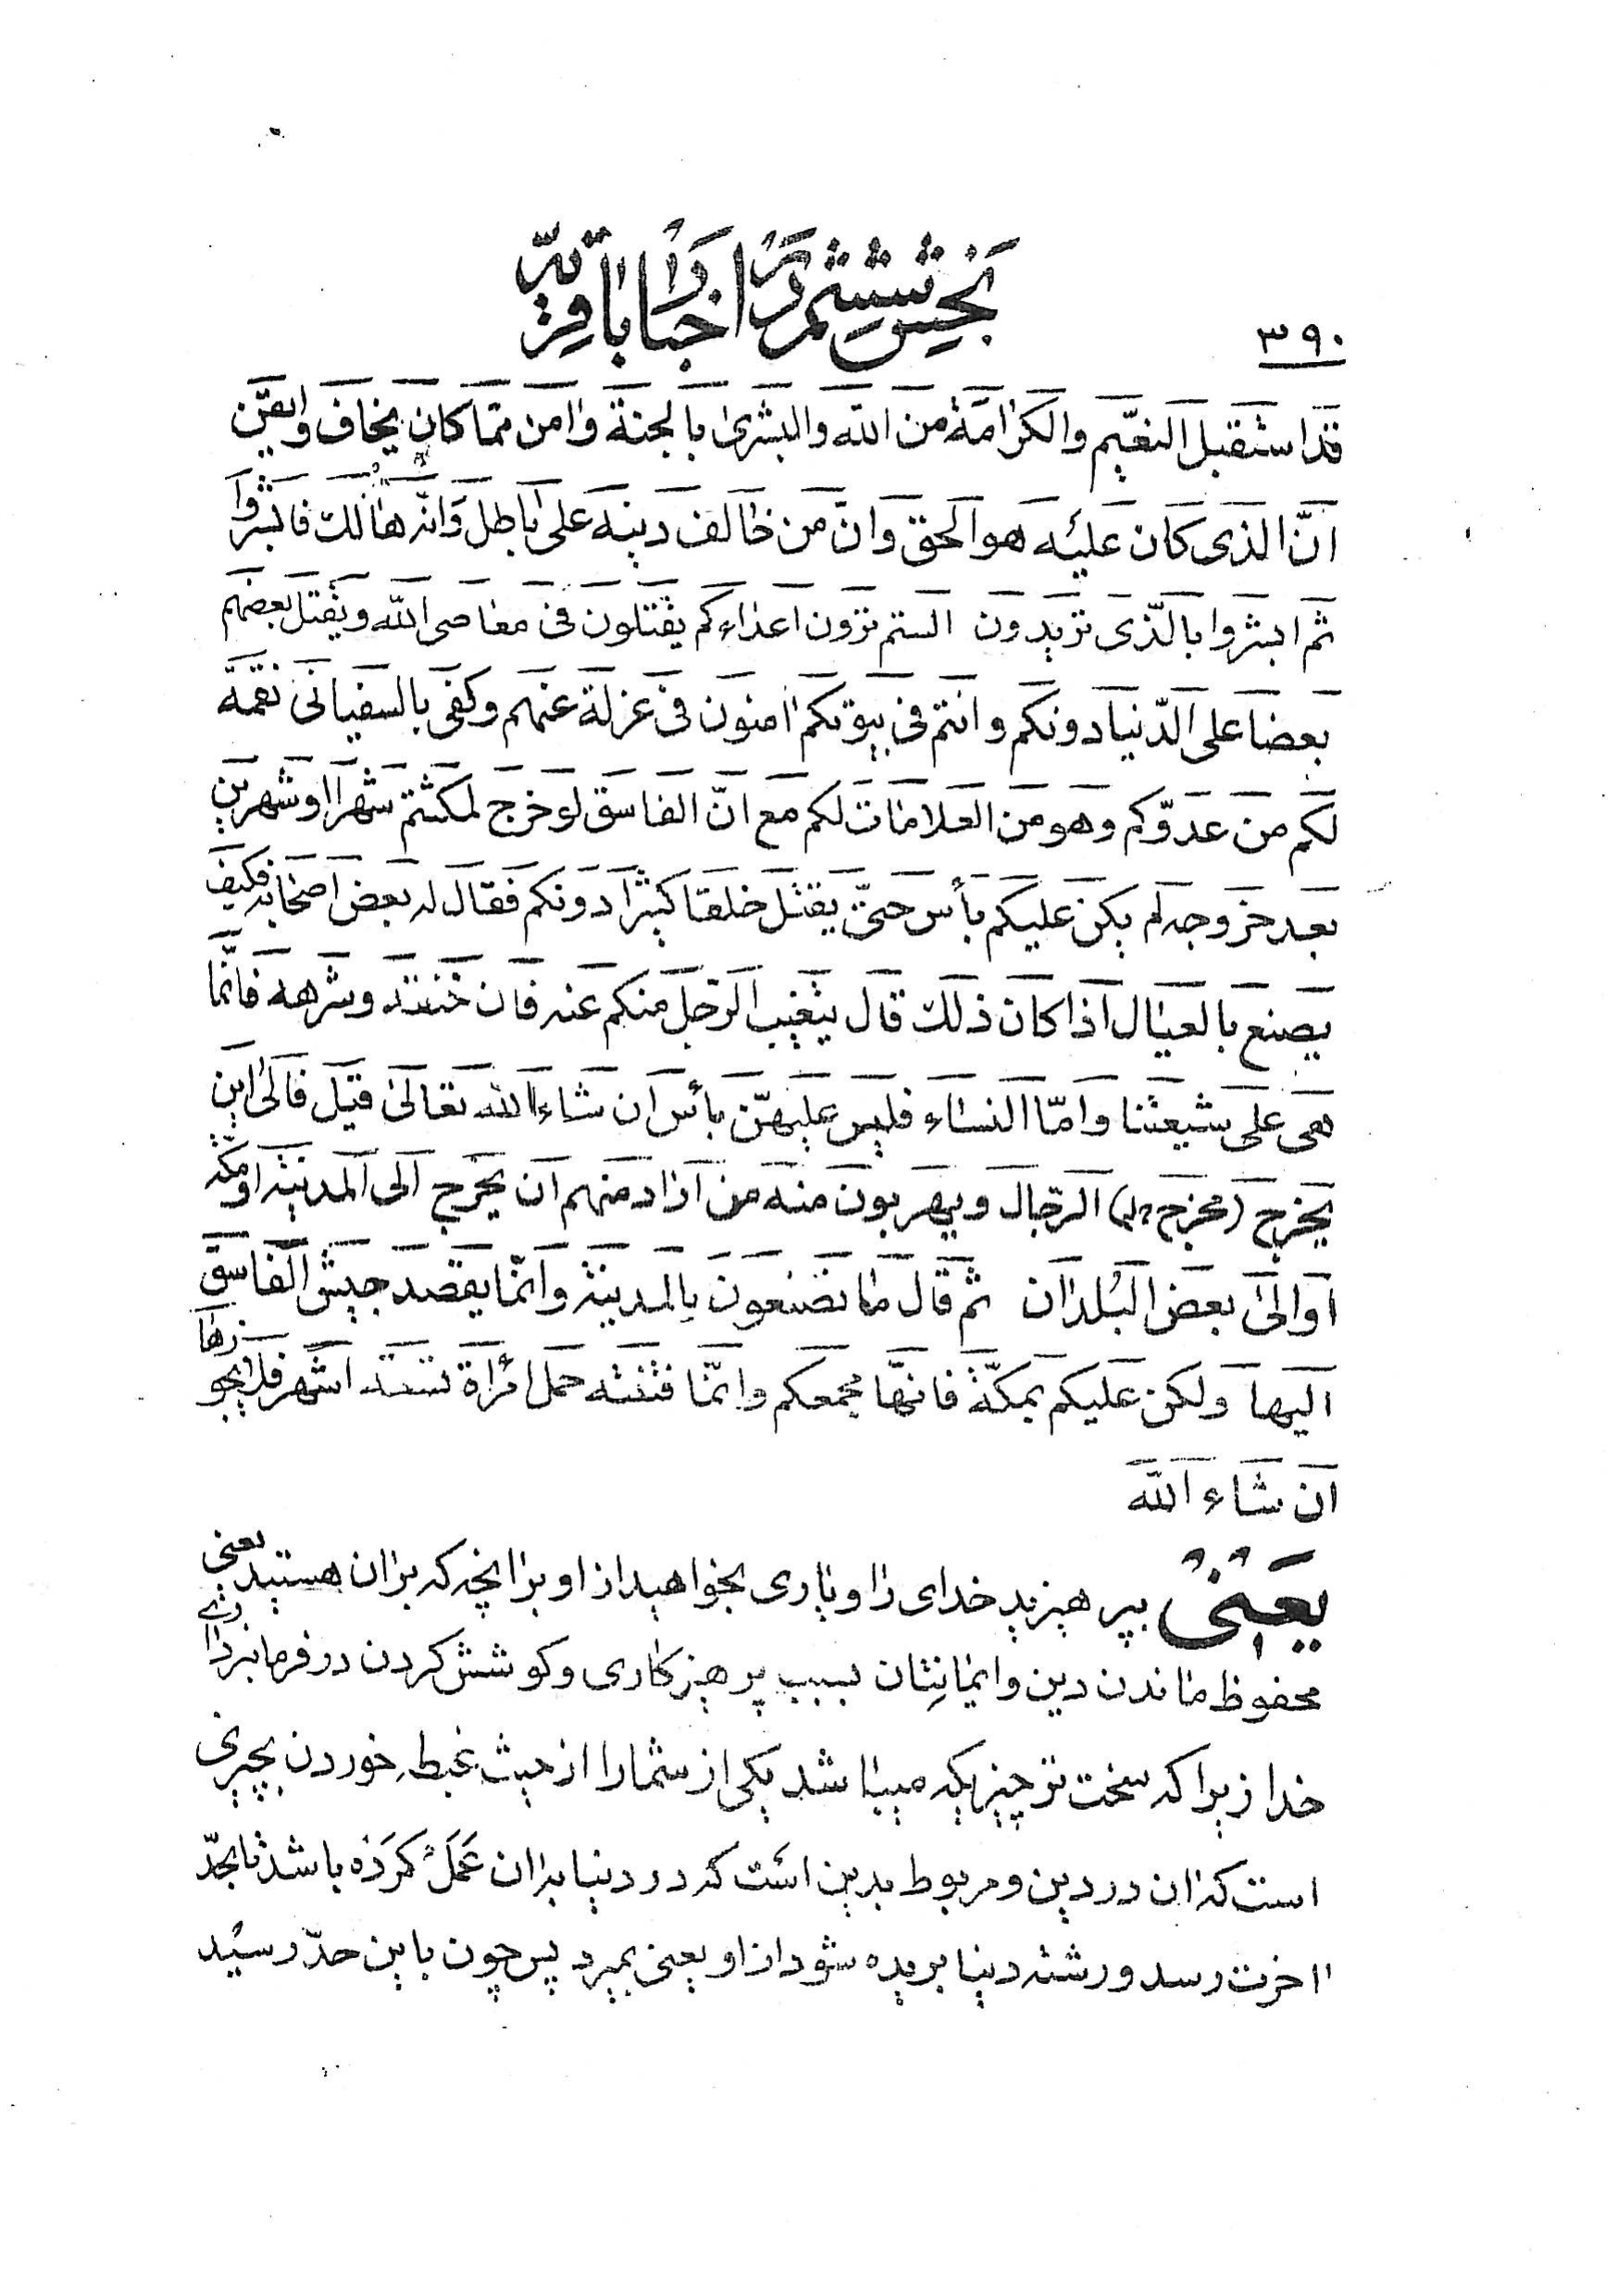 بخش ششم در اخبار باقریه
۳۹۰
قد استقبل النعیم والکرامة من الله والبشری بالجنة وامن مما کان یخاف وایقن
ان الذی کان علیه هو الحق وان من خالف دینه علی باطل وانه هالك فابشروا
ثم ابشروا بالذی تریدون الستم ترون اعدائکم یقتتلون فی معاصی الله ویقتل بعضهم
بعضا علی الدنیا دونکم وانتم فی بیوتکم امنون فی عزلة عنهم وکفی بالسفیانی نقمة
لکم من عدوکم وهو من العلامات لکم مع ان الفاسق لو خرج لمکثتم شهرا او شهرین
بعد خروجه لم یکن علیکم بأس حتی یقتل خلقا کثیرا دونکم فقال له بعض اصحابه فکیف
یصنع بالعیال اذا کان ذلك قال یتغیب الرجل منکم عنه فان وشرهه فانما
هی علی شیعتنا واما النساء فلیس علیهن بأس ان شاء الله تعالی قیل فالی این
یخرج (مخرج ) الرجال ویهربون منه من اراد منهم ان یخرج الی المدینة او مکة
او الی بعض البلدان ثم قال ما تصنعون بالمدینة وانما یقصد جیش الفاسق
الیها ولکن علیکم بمکة فانها مجمعکم وانما فتنته حمل امرأة تسعة اشهر فلا یجوزها
ان شاء الله
یعنی بپرهیزید خدای را ویاری بخواهید از او بر انچه که بران هستید یعنی
محفوظ ماندن دین وایمانتان بسبب پرهیزکاری وکوشش کردن در فرمانبرداری
خدا زیرا که سخت تر چیزیکه میباشد یکی از شما را از حیث غبطه خوردن بچیزی
است که ان در دین ومربوط بدین است که در دنیا بران عمل کرده باشد تا بحد
اخرت رسد ورشته دنیا بریده شود از او یعنی بمیرد پس چون باین حد رسید